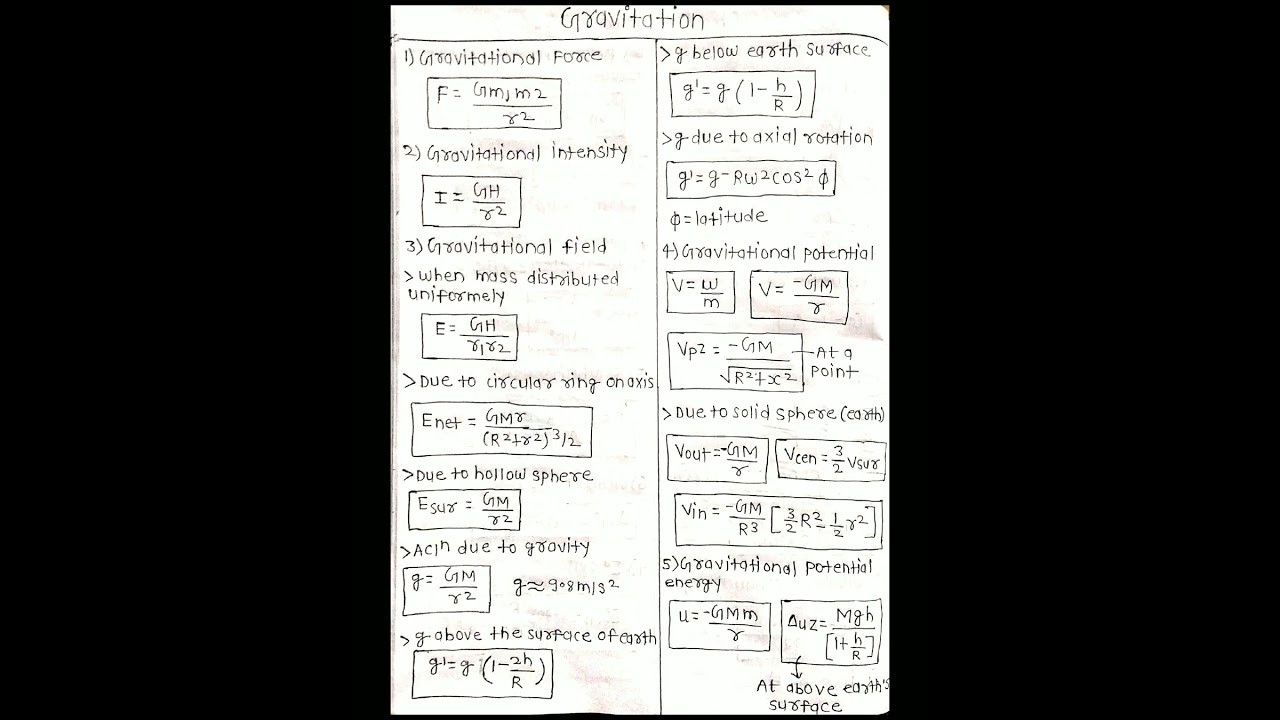 Gravitation
1) Gravitational Force
F = Gm1m2
r2
2) Gravitational intensity
I = GH
r2
3) Gravitational field
> when mass distributed
uniformely
E = GH
r1r2
> Due to circular ring on axis
Enet = GMr
(R2+r2)3/2
> Due to hollow sphere
Esur = GM
r2
> Acln due to gravity
g = GM
r2
g ≈ 9.8 m/s2
> g above the surface of earth
g' = g (1 - 2h
R)
> g below earth surface
g' = g (1 - h
R)
> g due to axial rotation
g' = g - Rω2 cos2 ϕ
ϕ = latitude
4) Gravitational potential
V = w
m
V = -GM
r
Vp2 = -GM
√R2+x2
At a
point
> Due to solid sphere (earth)
Vout = -GM
r
Vcen = 3
2 Vsur
Vin = -GM
R3 [3
2 R2 - 1
2 r2]
5) Gravitational potential
energy
u = -GMm
r
Δuz = Mgh
[1 + h
R]
At above earth's
surface